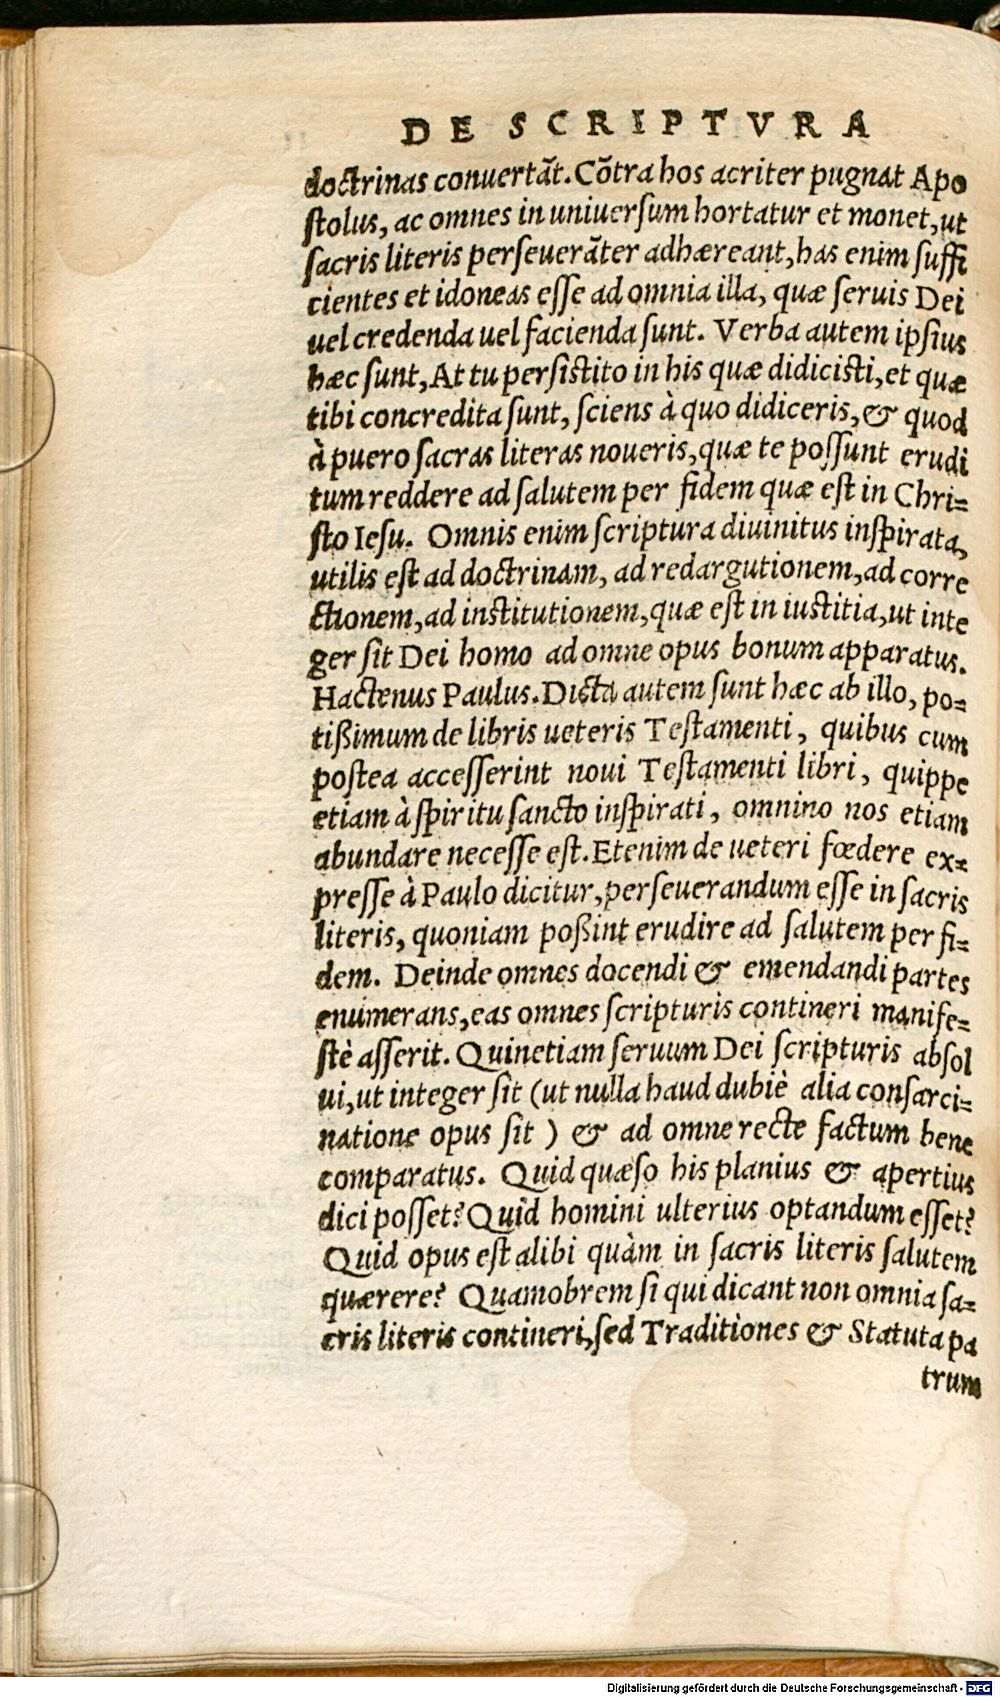 DE SCRIPTVRA
doctrinas conuertãt. Cõtra hos acriter pugnat Apo
stolus, ac omnes in uniuersum hortatur et monet, ut
sacris literis perseuerãter adhæreant, has enim suffi
cientes et idoneas esse ad omnia illa, quæ seruis Dei
uel credenda uel facienda sunt. Verba autem ipsius
hæc sunt, At tu persistito in his quæ didicisti, et quæ
tibi concredita sunt, sciens à quo didiceris, & quod
à puero sacras literas noueris, quæ te possunt erudi
tum reddere ad salutem per fidem quæ est in Chri=
sto Iesu. Omnis enim scriptura diuinitus inspirata,
utilis est ad doctrinam, ad redargutionem, ad corre
ctionem, ad institutionem, quæ est in iustitia, ut inte
ger sit Dei homo ad omne opus bonum apparatus.
Hactenus Paulus. Dicta autem sunt hæc ab illo, po=
tißimum de libris ueteris Testamenti, quibus cum
postea accesserint noui Testamenti libri, quippe
etiam à spiritu sancto inspirati, omnino nos etiam
abundare necesse est. Etenim de ueteri fœdere ex=
presse à Paulo dicitur, perseuerandum esse in sacris
literis, quoniam poßint erudire ad salutem per fi=
dem. Deinde omnes docendi & emendandi partes
enumerans, eas omnes scripturis contineri manife=
stè asserit. Quinetiam seruum Dei scripturis absol
ui, ut integer sit (ut nulla haud dubiè alia consarci=
natione opus sit) & ad omne recte factum bene
comparatus. Quid quæso his planius & apertius
dici posset? Quid homini ulterius optandum esset?
Quid opus est alibi quàm in sacris literis salutem
quærere? Quamobrem si qui dicant non omnia sa=
cris literis contineri, sed Traditiones & Statuta pa
trum
Digitalisierung gefördert durch die Deutsche Forschungsgemeinschaft - DFG